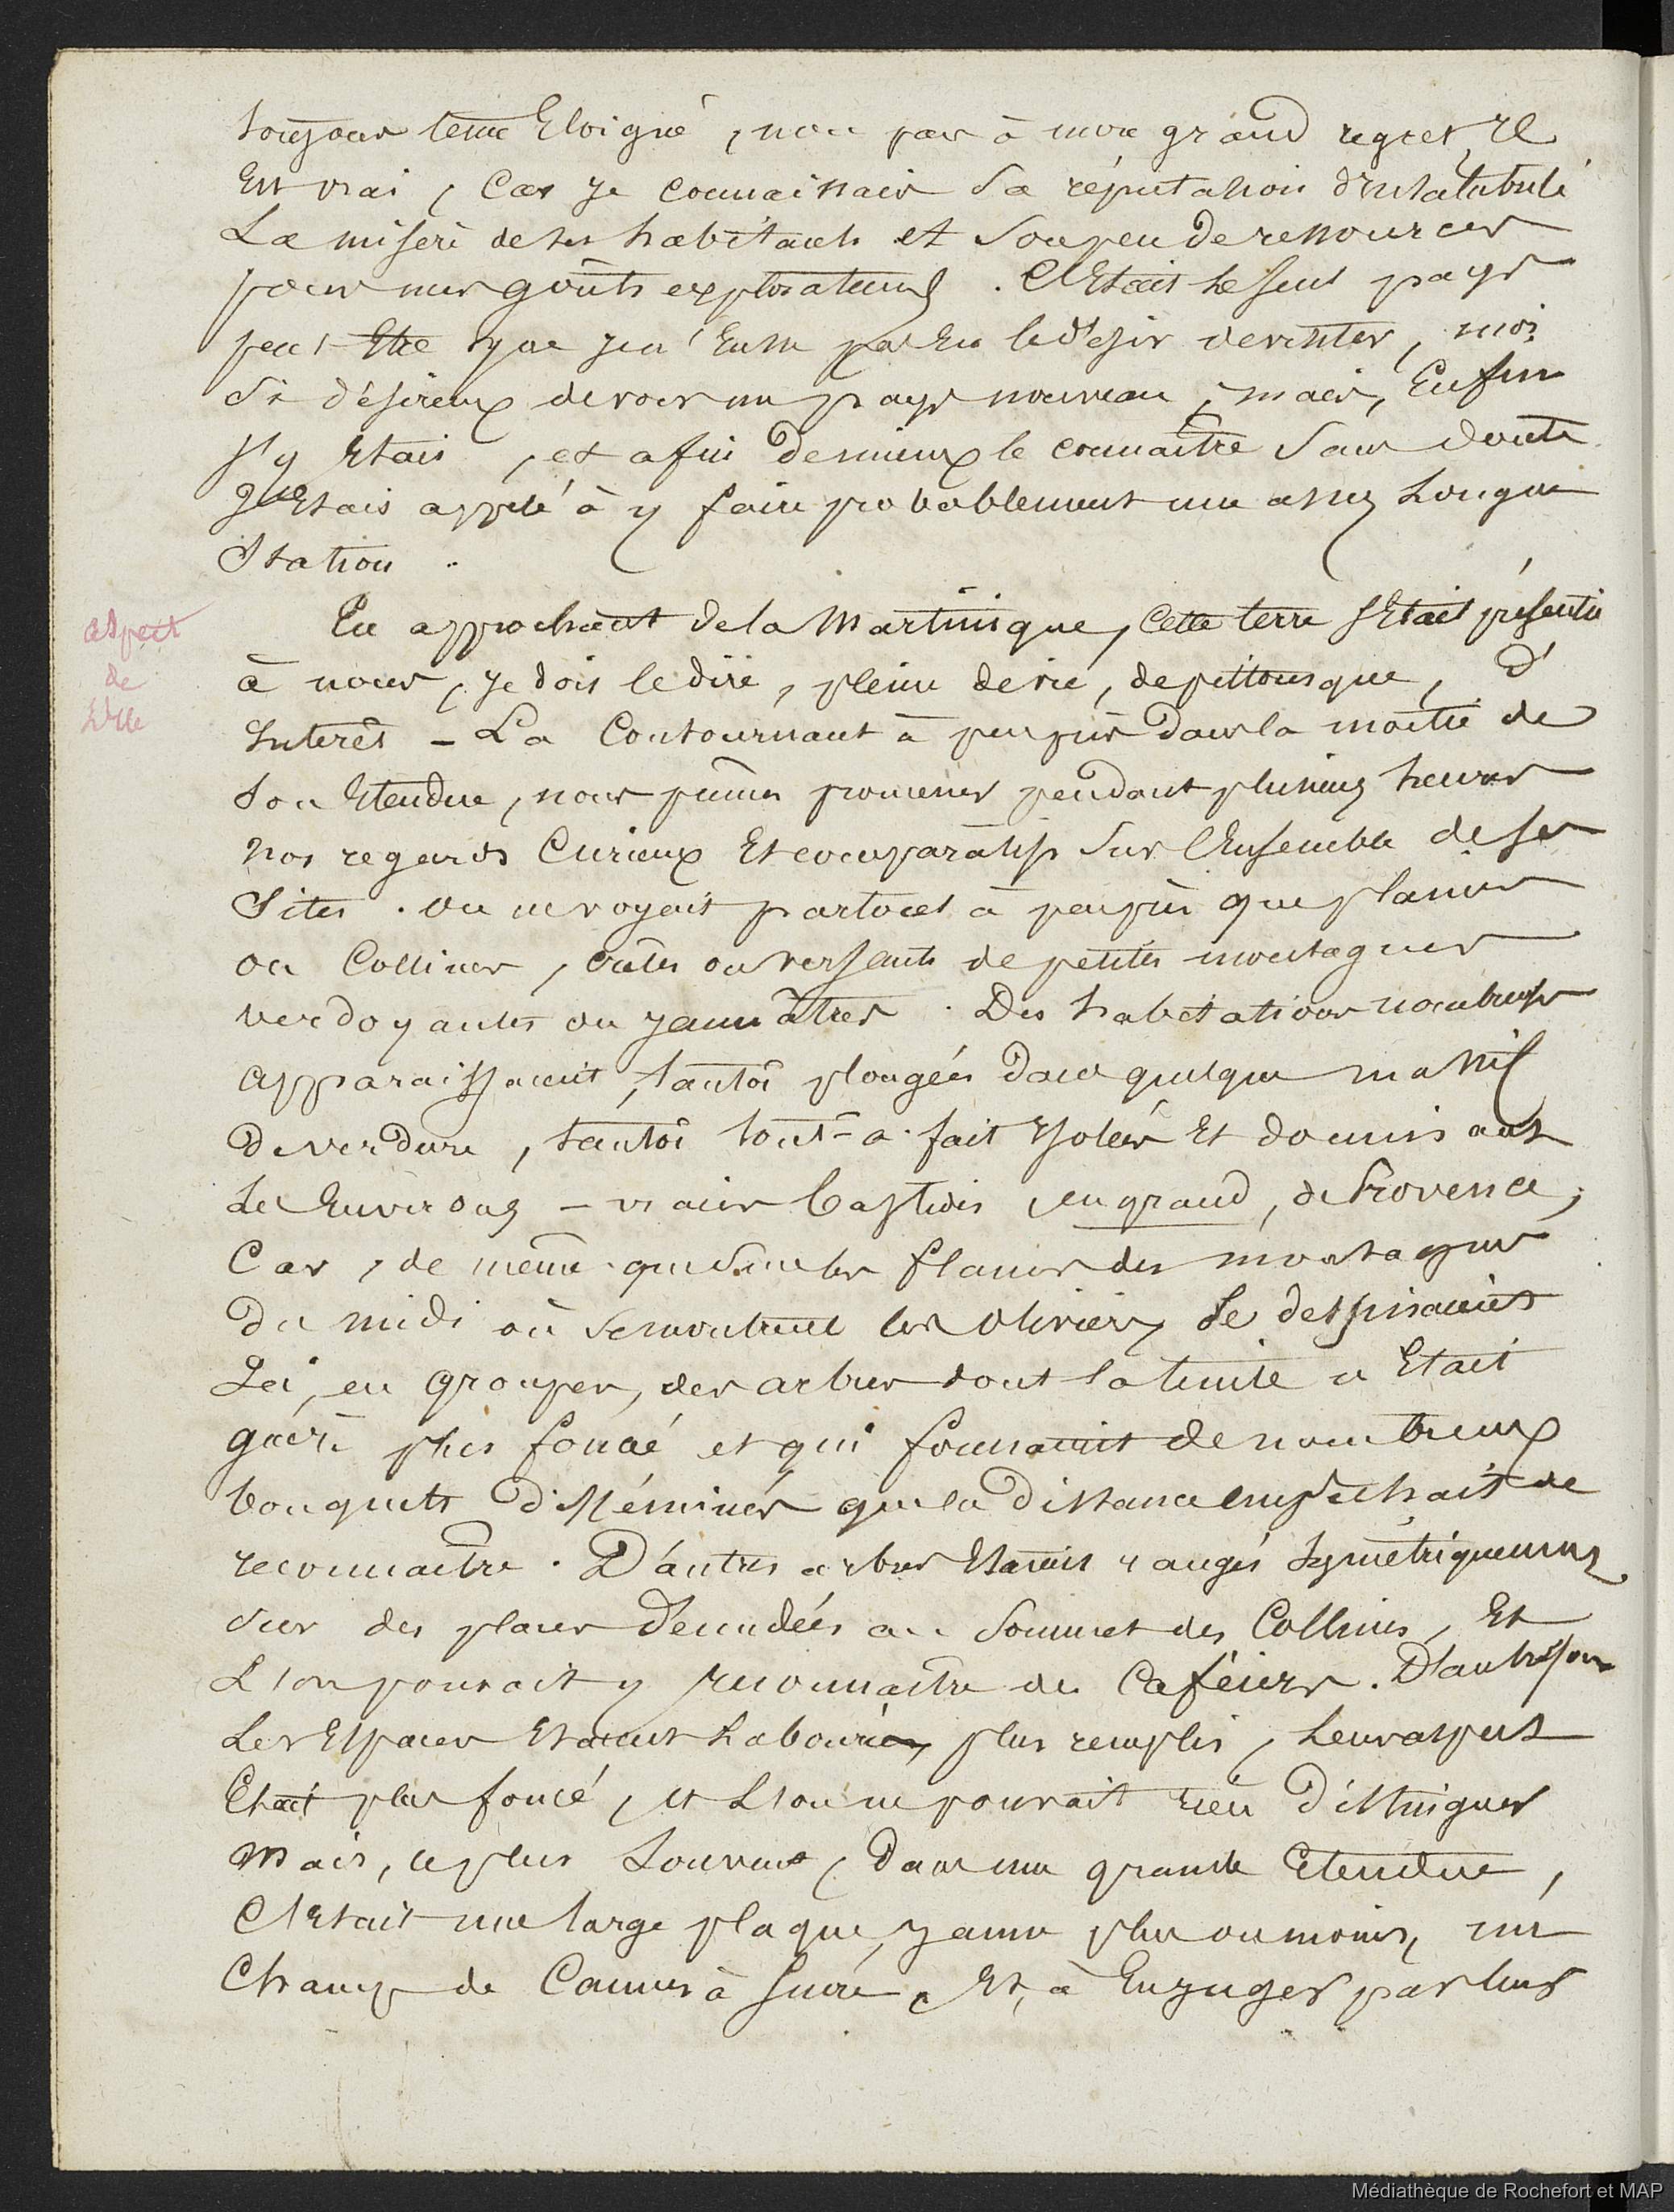 toujours tenu Eloigné, non pas à mon grand regret, Il
Est vrai, Car je connaissais Sa réputation d'Insalubrité
La misère de ses habitants et Son peu de ressources
pour mes goûts explorateurs. C'Etait le seul pays
peut Etre que je n'Eusse pas Eu le désir de visiter, moi
Si désireux de voir un pays nouveau, mais, Enfin
j'y Etais, et afin de mieux le connaître Sans doute
J'Etais appelé à y faire probablement une assez Longue
Station.
aspect
de
L'Ile
En approchant de la Martinique, Cette terre s'Etait présentée
à nous, je dois le dire, pleine de vie, de pittoresque, d'
Intérêt - La Contournant à peu près dans la moitié de
Son Etendue, nous pûmes promener pendant plusieurs heures
nos regards Curieux Et comparatifs Sur l'Ensemble de ses
Sites. On ne voyait partout à peu près que plaines
ou Collines, côtes ou versants de petites montagnes
verdoyantes ou jaunâtres. Des habitations nombreuses
apparaissaient, tantôt plongées dans quelque massif
de verdure, tantôt tout-à-fait Isolées Et dominant
Les Environs - vraies bastides, en grand, de Provence;
Car, de même que Sur les flancs des montagnes
du midi où se montrent les oliviers, Se dessinaient
Ici, en groupes, des arbres dont la teinte n'Etait
guère plus foncée et qui formaient de nombreux
bouquets disséminés que la distance empêchait de
reconnaître. D'autres arbres Etaient rangés Symétriquement
Sur des places dénudées au Sommet des Collines, Et
L'on pouvait y reconnaître des Caféiers. D'autres fois
Les Espaces Etaient Labourés, plus remplis, Leur aspect
Etait plus foncé, et L'on ne pouvait rien distinguer
Mais, le plus Souvent, dans une grande Etendue,
C'Etait une large plaque, jaune plus ou moins, un
Champ de Cannes à Sucre. Et, à En juger par leur
Médiathèque de Rochefort et MAP